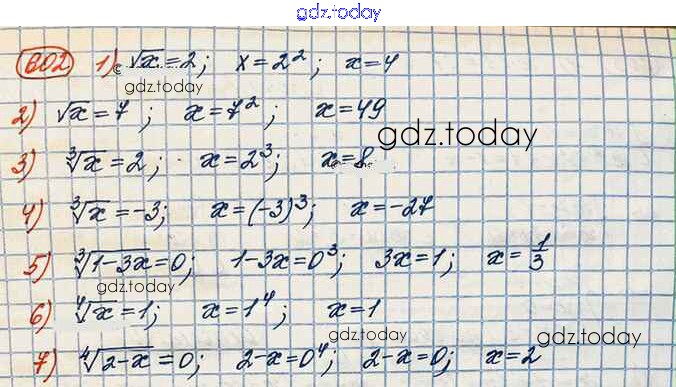 gdz.today
602 1) √x = 2; x = 2²; x = 4
gdz.today
2) √x = 7; x = 7²; x = 49
gdz.today
3) ∛x = 2; x = 2³; x = 8
4) ∛x = -3; x = (-3)³; x = -27
5) ∛(1-3x) = 0; 1-3x = 0³; 3x = 1; x = 1/3
gdz.today
6) ∜x = 1; x = 1⁴; x = 1
gdz.today gdz.today
7) ∜(2-x) = 0; 2-x = 0⁴; 2-x = 0; x = 2